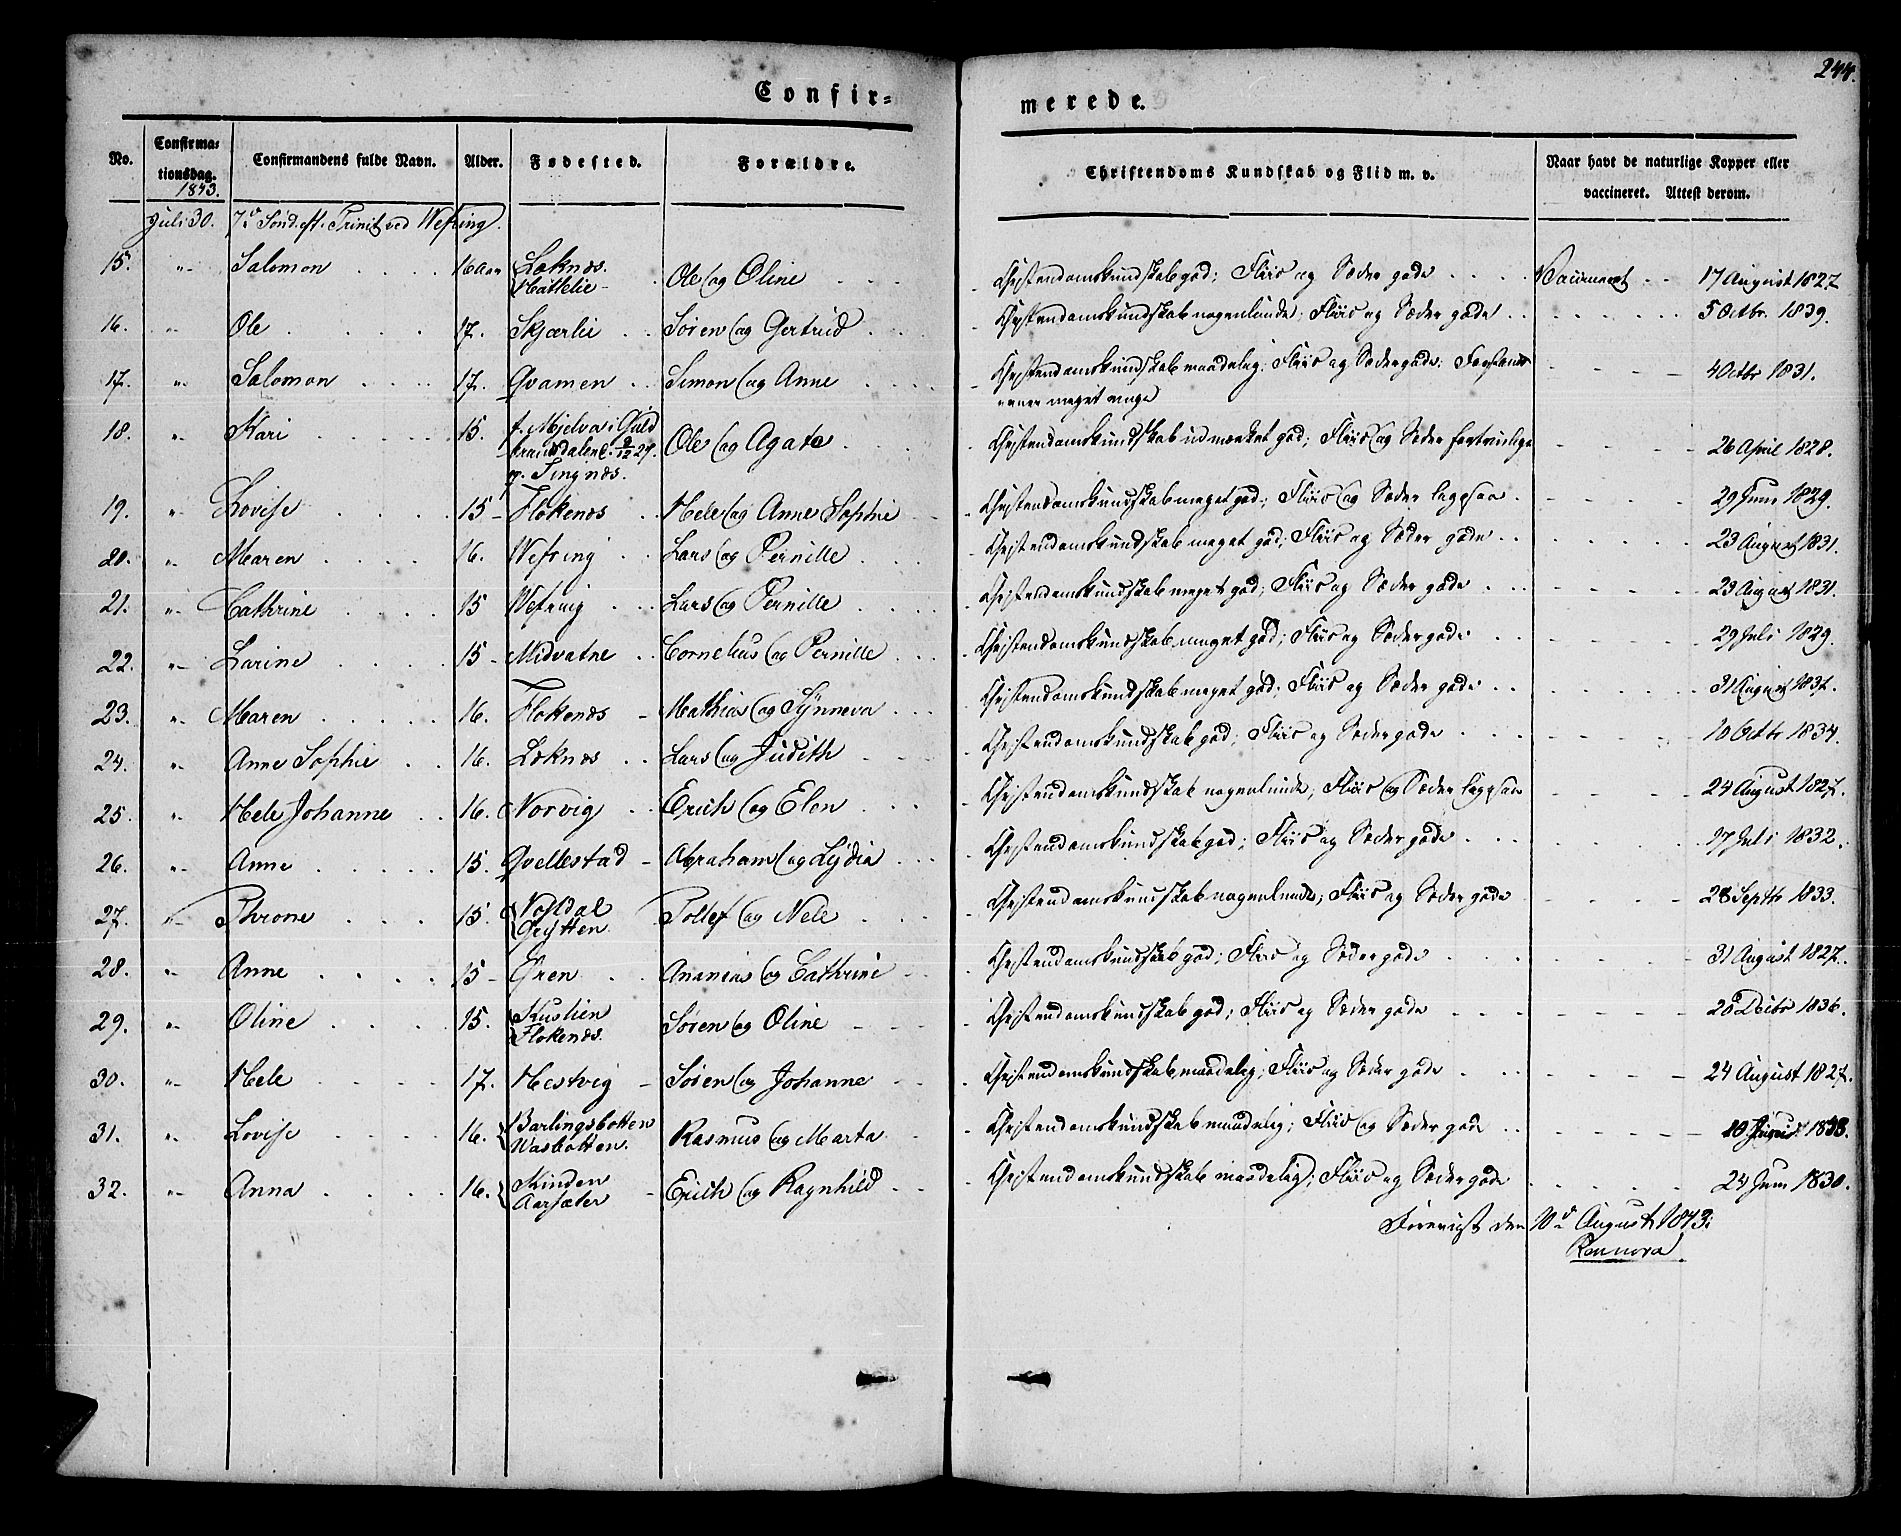 244.
Confir-
merede.
No.
Confirma-
tionsdag.
1843.
Confirmandens fulde Navn.
Alder.
Fødested.
Forældre.
Christendoms Kundskab og Flid m. v.
Naar havt de naturlige Kopper eller
vaccineret. Attest derom.
Juli 30. 7de Sønd. eft. Trinit. ved Wefring.
15. " Salomon 16 Aar Løknes. Hattelie Ole og Oline Christendomskundskab god; Fliid og Sæder gode Vaccineret 17 August 1827
16. " Ole 17. Skjærlie Søren og Gertrud Christendomskundskab nogenlunde; Fliid og Sæder gode 5 Octbr. 1839.
17. " Salomon 17. Qvamen Simon og Anne Christendomskundskab maadelig; Fliid og Sæder gode. Forstands-
evner meget ringe 4 Octbr 1831.
18. " Kari 15. f. Mjelva i Guld
brandsdalen d. 9/12 27.
g. Tingnes. Ole og Agate Christendomskundskab udmærket god; Fliid og Sæder fortrinlige 26 April 1828.
19. " Lovise 15 Flokenes Hele og Anne Sophie Christendomskundskab meget god; Fliid og Sæder ligesaa 29 Juni 1829.
20. " Maren 16. Wefring Lars og Pernille Christendomskundskab meget god; Fliid og Sæder gode 23 August 1831.
21. " Cathrine 15 Wefring Lars og Pernille Christendomskundskab meget god; Fliid og Sæder gode 23 August 1831.
22. " Larine 15 Midvatne Cornelius og Pernille Christendomskundskab meget god; Fliid og Sæder gode 29 Juli 1829.
23. " Maren 16. Flokenes Mathias og Synneva Christendomskundskab meget god; Fliid og Sæder gode 31 August 1837.
24. " Anne Sophie 16. Løknes Lars og Judith Christendomskundskab god; Fliid og Sæder gode 10 Octbr 1834.
25. " Hele Johanne 16. Norvig Erich og Elen Christendomskundskab nogenlunde; Fliid og Sæder ligesaa 24 August 1827.
26. " Anne 15. Qvellestad Abraham og Lydia Christendomskundskab god; Fliid og Sæder gode 17 Juli 1832.
27. " Throne 15. Vossdal
Grytten Tollef og Nele Christendomskundskab nogenlunde; Fliid og Sæder gode 28 Septbr 1833.
28. " Anne 15 Øren Ananias og Cathrine Christendomskundskab god; Fliid og Sæder gode 31 August 1827.
29. " Oline 15. Kustien
Flokenes. Søren og Oline Christendomskundskab god; Fliid og Sæder gode 28 Decbr 1836.
30. " Hele 17. Hestvig Søren og Johanne Christendomskundskab maadelig; Fliid og Sæder gode 24 August 1827.
31. " Lovise 16. Barlingsbotten
Wasbotten. Rasmus og Marta Christendomskundskab maadelig; Fliid og Sæder gode 1833.
32. " Anna 16. Kinden
Aarsæter Erich og Ragnhild Christendomskundskab maadelig; Fliid og Sæder gode 24 Juni 1830.
Foreviist den 10de August 1843:
Rennord